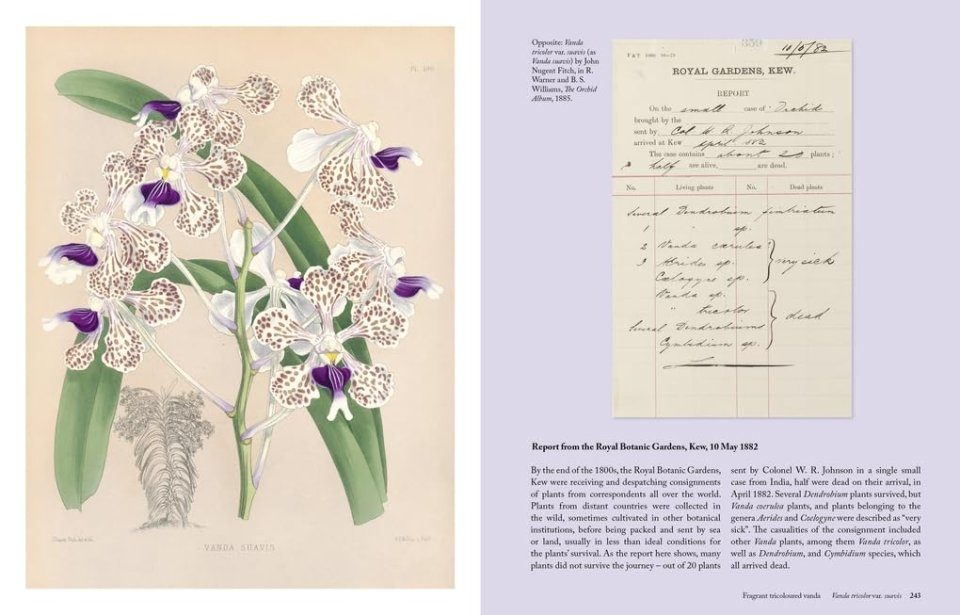 VANDA SUAVIS
Opposite: Vanda
tricolor var. suavis (as
Vanda suavis) by John
Nugent Fitch, in R.
Warner and B. S.
Williams, The Orchid
Album, 1885.
359
10/5/82
ROYAL GARDENS, KEW.
REPORT
On the small case of Orchid
brought by the
sent by Col W. R. Johnson
arrived at Kew April '82
The case contains about 20 plants;
half are alive, are dead.
No. Living plants No. Dead plants
Several Dendrobium fimbriatum
1 " sp.
2 Vanda cœrulea
3 Aerides sp. very sick
Cœlogyne sp.
Vanda sp.
" tricolor dead
Several Dendrobiums
Cymbidium sp.
Report from the Royal Botanic Gardens, Kew, 10 May 1882
By the end of the 1800s, the Royal Botanic Gardens,
Kew were receiving and despatching consignments
of plants from correspondents all over the world.
Plants from distant countries were collected in
the wild, sometimes cultivated in other botanical
institutions, before being packed and sent by sea
or land, usually in less than ideal conditions for
the plants' survival. As the report here shows, many
plants did not survive the journey – out of 20 plants
sent by Colonel W. R. Johnson in a single small
case from India, half were dead on their arrival, in
April 1882. Several Dendrobium plants survived, but
Vanda coerulea plants, and plants belonging to the
genera Aerides and Coelogyne were described as “very
sick”. The casualties of the consignment included
other Vanda plants, among them Vanda tricolor, as
well as Dendrobium, and Cymbidium species, which
all arrived dead.
Fragrant tricoloured vanda Vanda tricolor var. suavis 243